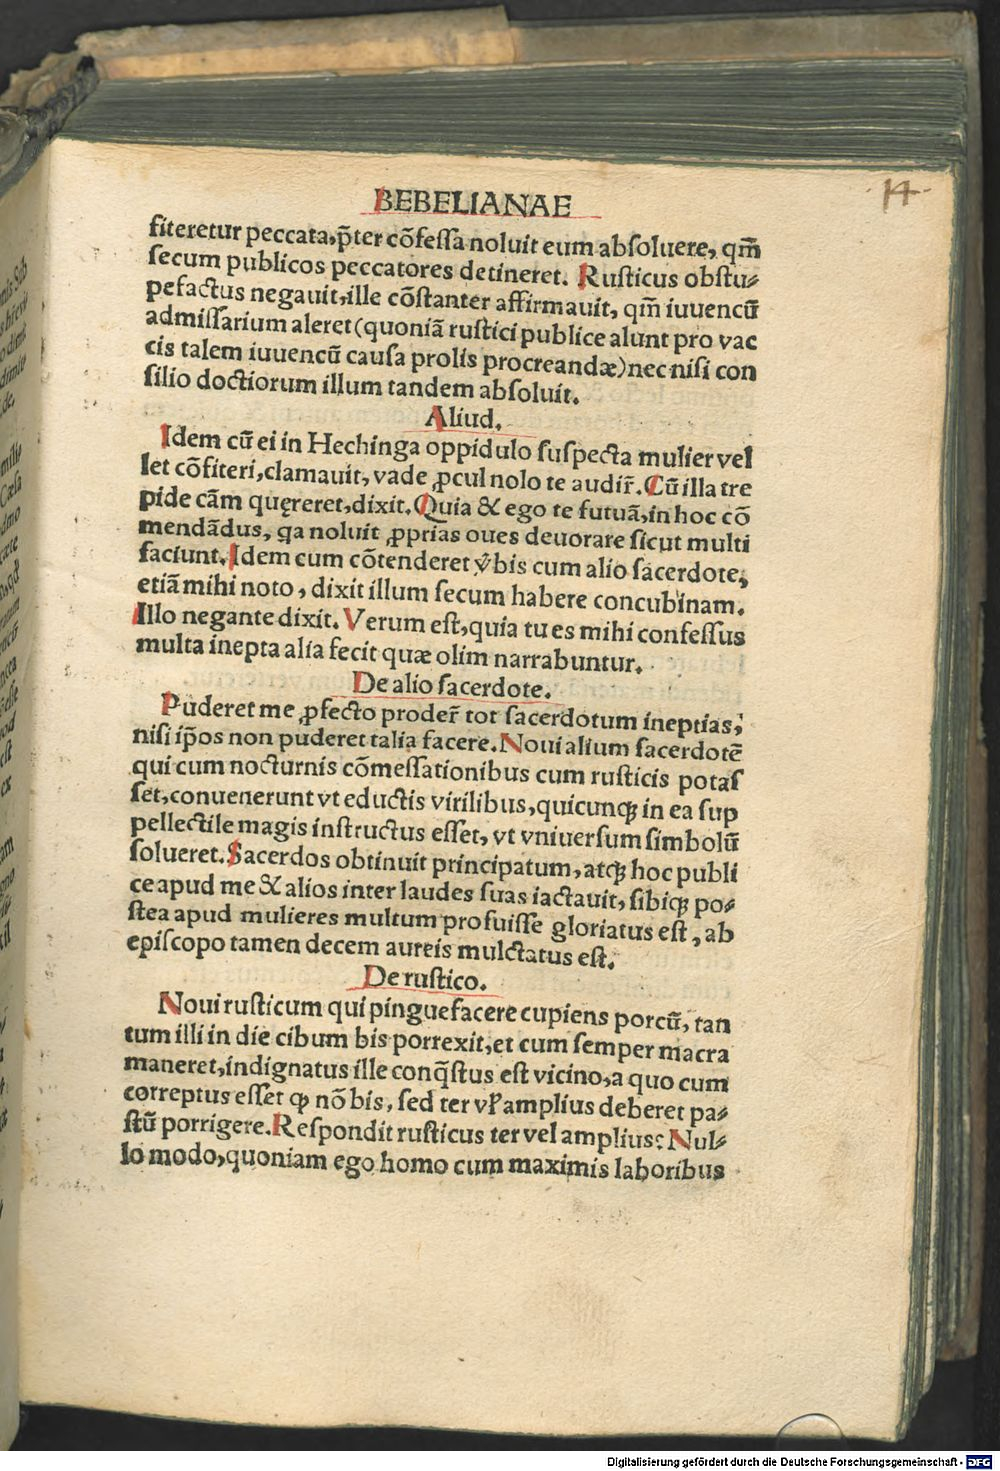 14
BEBELIANAE
fiteretur peccata, p̃ter cõfessa noluit eum absoluere, qm̃
secum publicos peccatores detineret. Rusticus obstu-
pefactus negauit, ille cõstanter affirmauit, qm̃ iuuencũ
admissarium aleret (quoniã rustici publice alunt pro vac
cis talem iuuencũ causa prolis procreandæ) nec nisi con
silio doctiorum illum tandem absoluit.
Aliud.
Idem cũ ei in Hechinga oppidulo suspecta mulier vel
let cõfiteri, clamauit, vade ꝓcul nolo te audir̃. Cũ illa tre
pide cãm quęreret, dixit. Quia & ego te futuã, in hoc cõ
mendãdus, qa noluit ꝓprias oues deuorare sicut multi
faciunt. Idem cum cõtenderet v̾bis cum alio sacerdote,
etiã mihi noto, dixit illum secum habere concubinam.
Illo negante dixit. Verum est, quia tu es mihi confessus
multa inepta alia fecit quæ olim narrabuntur.
De alio sacerdote.
Puderet me ꝓfecto proder̃ tot sacerdotum ineptias,
nisi ip̃os non puderet talia facere. Noui alium sacerdotẽ
qui cum nocturnis cõmessationibus cum rusticis potas
set, conuenerunt vt eductis virilibus, quicunqꝫ in ea sup
pellectile magis instructus esset, vt vniuersum simbolũ
solueret. Sacerdos obtinuit principatum, atqꝫ hoc publi
ce apud me & alios inter laudes suas iactauit, sibiqꝫ po-
stea apud mulieres multum profuisse gloriatus est, ab
episcopo tamen decem aureis mulctatus est.
De rustico.
Noui rusticum qui pinguefacere cupiens porcũ, tan
tum illi in die cibum bis porrexit, et cum semper macra
maneret, indignatus ille conq̃stus est vicino, a quo cum
correptus esset qꝫ nõ bis, sed ter vl̾ amplius deberet pa-
stũ porrigere. Respondit rusticus ter vel amplius: Nul-
lo modo, quoniam ego homo cum maximis laboribus
Digitalisierung gefördert durch die Deutsche Forschungsgemeinschaft - DFG